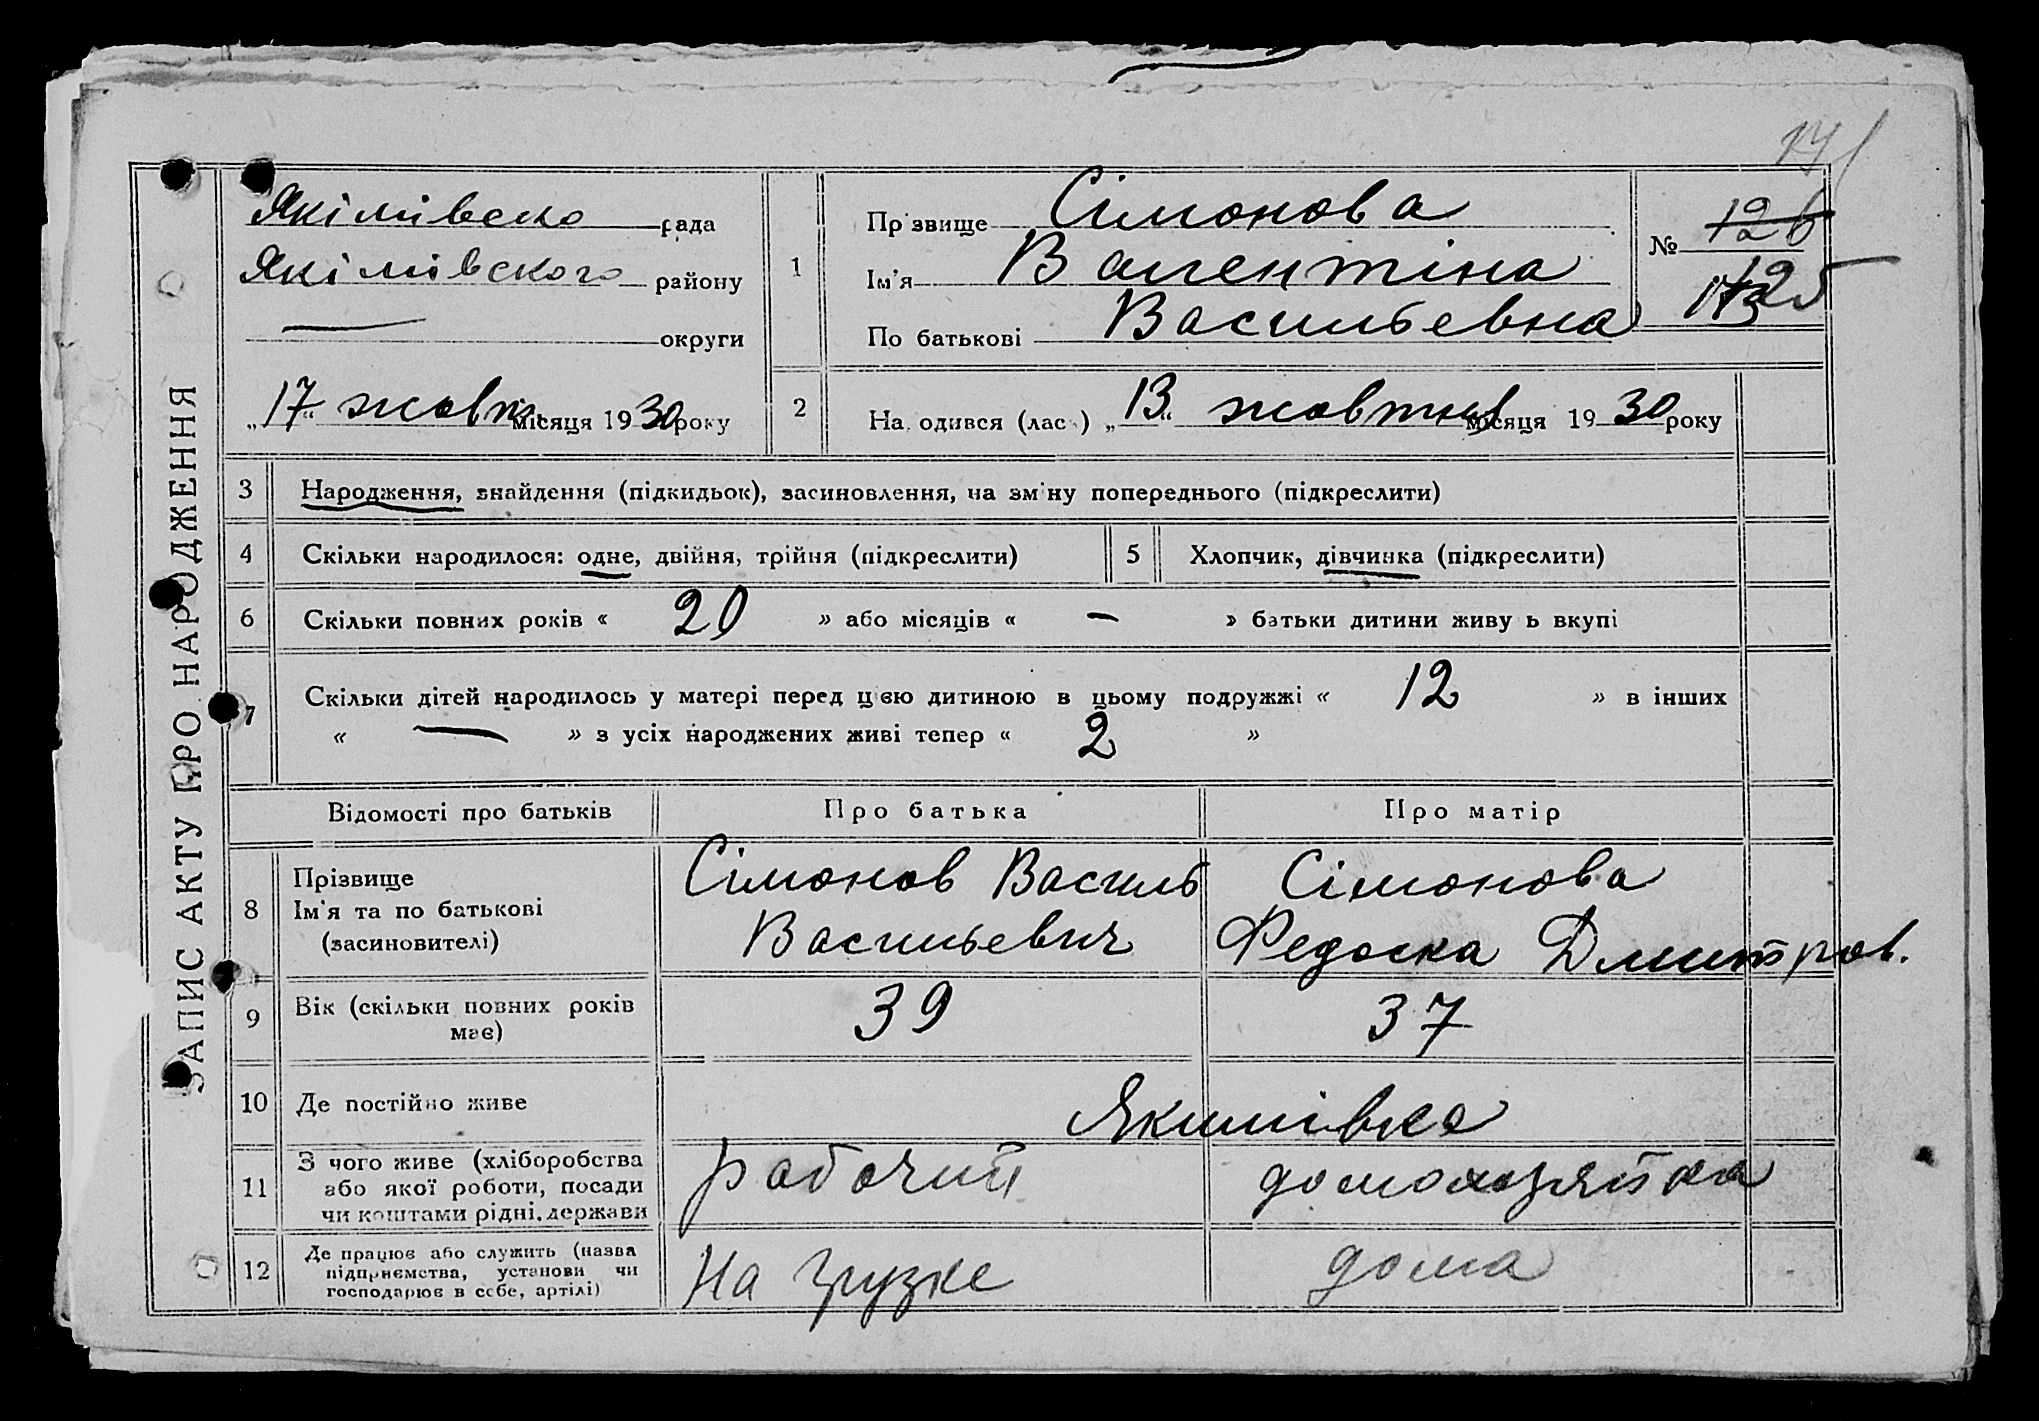 ЗАПИС АКТУ ПРО НАРОДЖЕННЯ
Якімівська рада
Якімівского району
— округи
„17“ жовт. місяця 1930 року
1
Прізвище Сімонова
Ім'я Валентіна
По батькові Васильевна
№ 126
125
2
На одився (лась) „13“ жовтня місяця 1930 року
3 Народження, знайдення (підкидьок), засиновлення, на зміну попереднього (підкреслити)
4 Скільки народилося: одне, двійня, трійня (підкреслити) 5 Хлопчик, дівчинка (підкреслити)
6 Скільки повних років « 20 » або місяців « — » батьки дитини живуть вкупі
7 Скільки дітей народилось у матері перед цією дитиною в цьому подружжі « 12 » в інших
« — » з усіх народжених живі тепер « 2 »
Відомості про батьків Про батька Про матір
8 Прізвище
Ім'я та по батькові
(засиновителі)
Сімонов Василь
Васильевич
Сімонова
Федоска Дмитров.
9 Вік (скільки повних років
має)
39 37
10 Де постійно живе Якимівка
11 З чого живе (хліборобства
або якої роботи, посади
чи коштами рідні, держави
рабочий домохозяйка
12 Де працює або служить (назва
підприємства, установи чи
господарює в себе, артілі)
На грузке дома